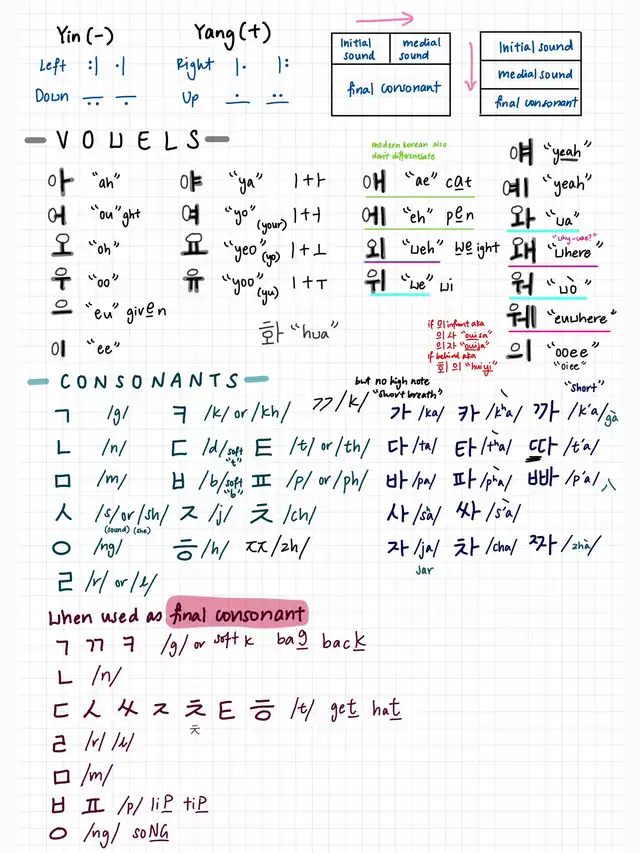 Yin (-) Yang (+)
Left :| ·| Right |· |:
Down Up
Initial sound medial sound
final consonant
Initial sound
medial sound
final consonant
VOWELS
아 "ah" 야 "ya" ㅣ+ㅏ
어 "ou"ght 여 "yo" (your) ㅣ+ㅓ
오 "oh" 요 "yeo" (yo) ㅣ+ㅗ
우 "oo" 유 "yoo" (yu) ㅣ+ㅜ
으 "eu" given
이 "ee"
화 "hua"
modern korean also dont differentiate
애 "ae" cat
에 "eh" pen
외 "weh" weight
위 "we" wi
얘 "yeah"
예 "yeah"
와 "ua"
"why-uae?"
왜 "where"
워 "wò"
웨 "euwhere"
의 "ooee"
"oiee"
if 의 infront aka
의사 "ouisa"
의자 "ouija"
if behind aka
회의 "huiyi"
CONSONANTS
ㄱ /g/ ㅋ /k/ or /kh/ ㄲ /k/ but no high note "short breath"
ㄴ /n/ ㄷ /d/ soft "t" ㅌ /t/ or /th/
ㅁ /m/ ㅂ /b/ soft "b" ㅍ /p/ or /ph/
ㅅ /s/ or /sh/ (sound) (she) ㅈ /j/ ㅊ /ch/
ㅇ /ng/ ㅎ /h/ ㅉ /zh/
ㄹ /r/ or /l/
"short"
가 /ka/ 카 /kʰa/ 까 /k'a/ gà
다 /ta/ 타 /tʰa/ 따 /t'a/
바 /pa/ 파 /pʰa/ 빠 /p'a/ 八
사 /sa/ 싸 /s'a/
자 /ja/ 차 /cha/ 짜 /zhà/
Jar
when used as final consonant
ㄱ ㄲ ㅋ /g/ or soft k bag back
ㄴ /n/
ㄷ ㅅ ㅆ ㅈ ㅊ ㅌ ㅎ /t/ get hat
ㅊ
ㄹ /r/ /l/
ㅁ /m/
ㅂ ㅍ /p/ liP tiP
ㅇ /ng/ soNG